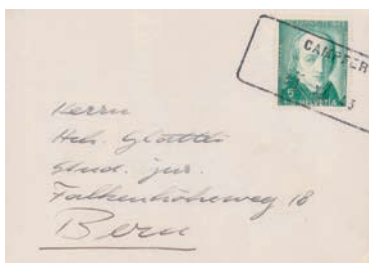 CAMPFER
5
HELVETIA
Herrn
Hch. Glättli
Stud. jur.
Falkenhöheweg 18
Bern